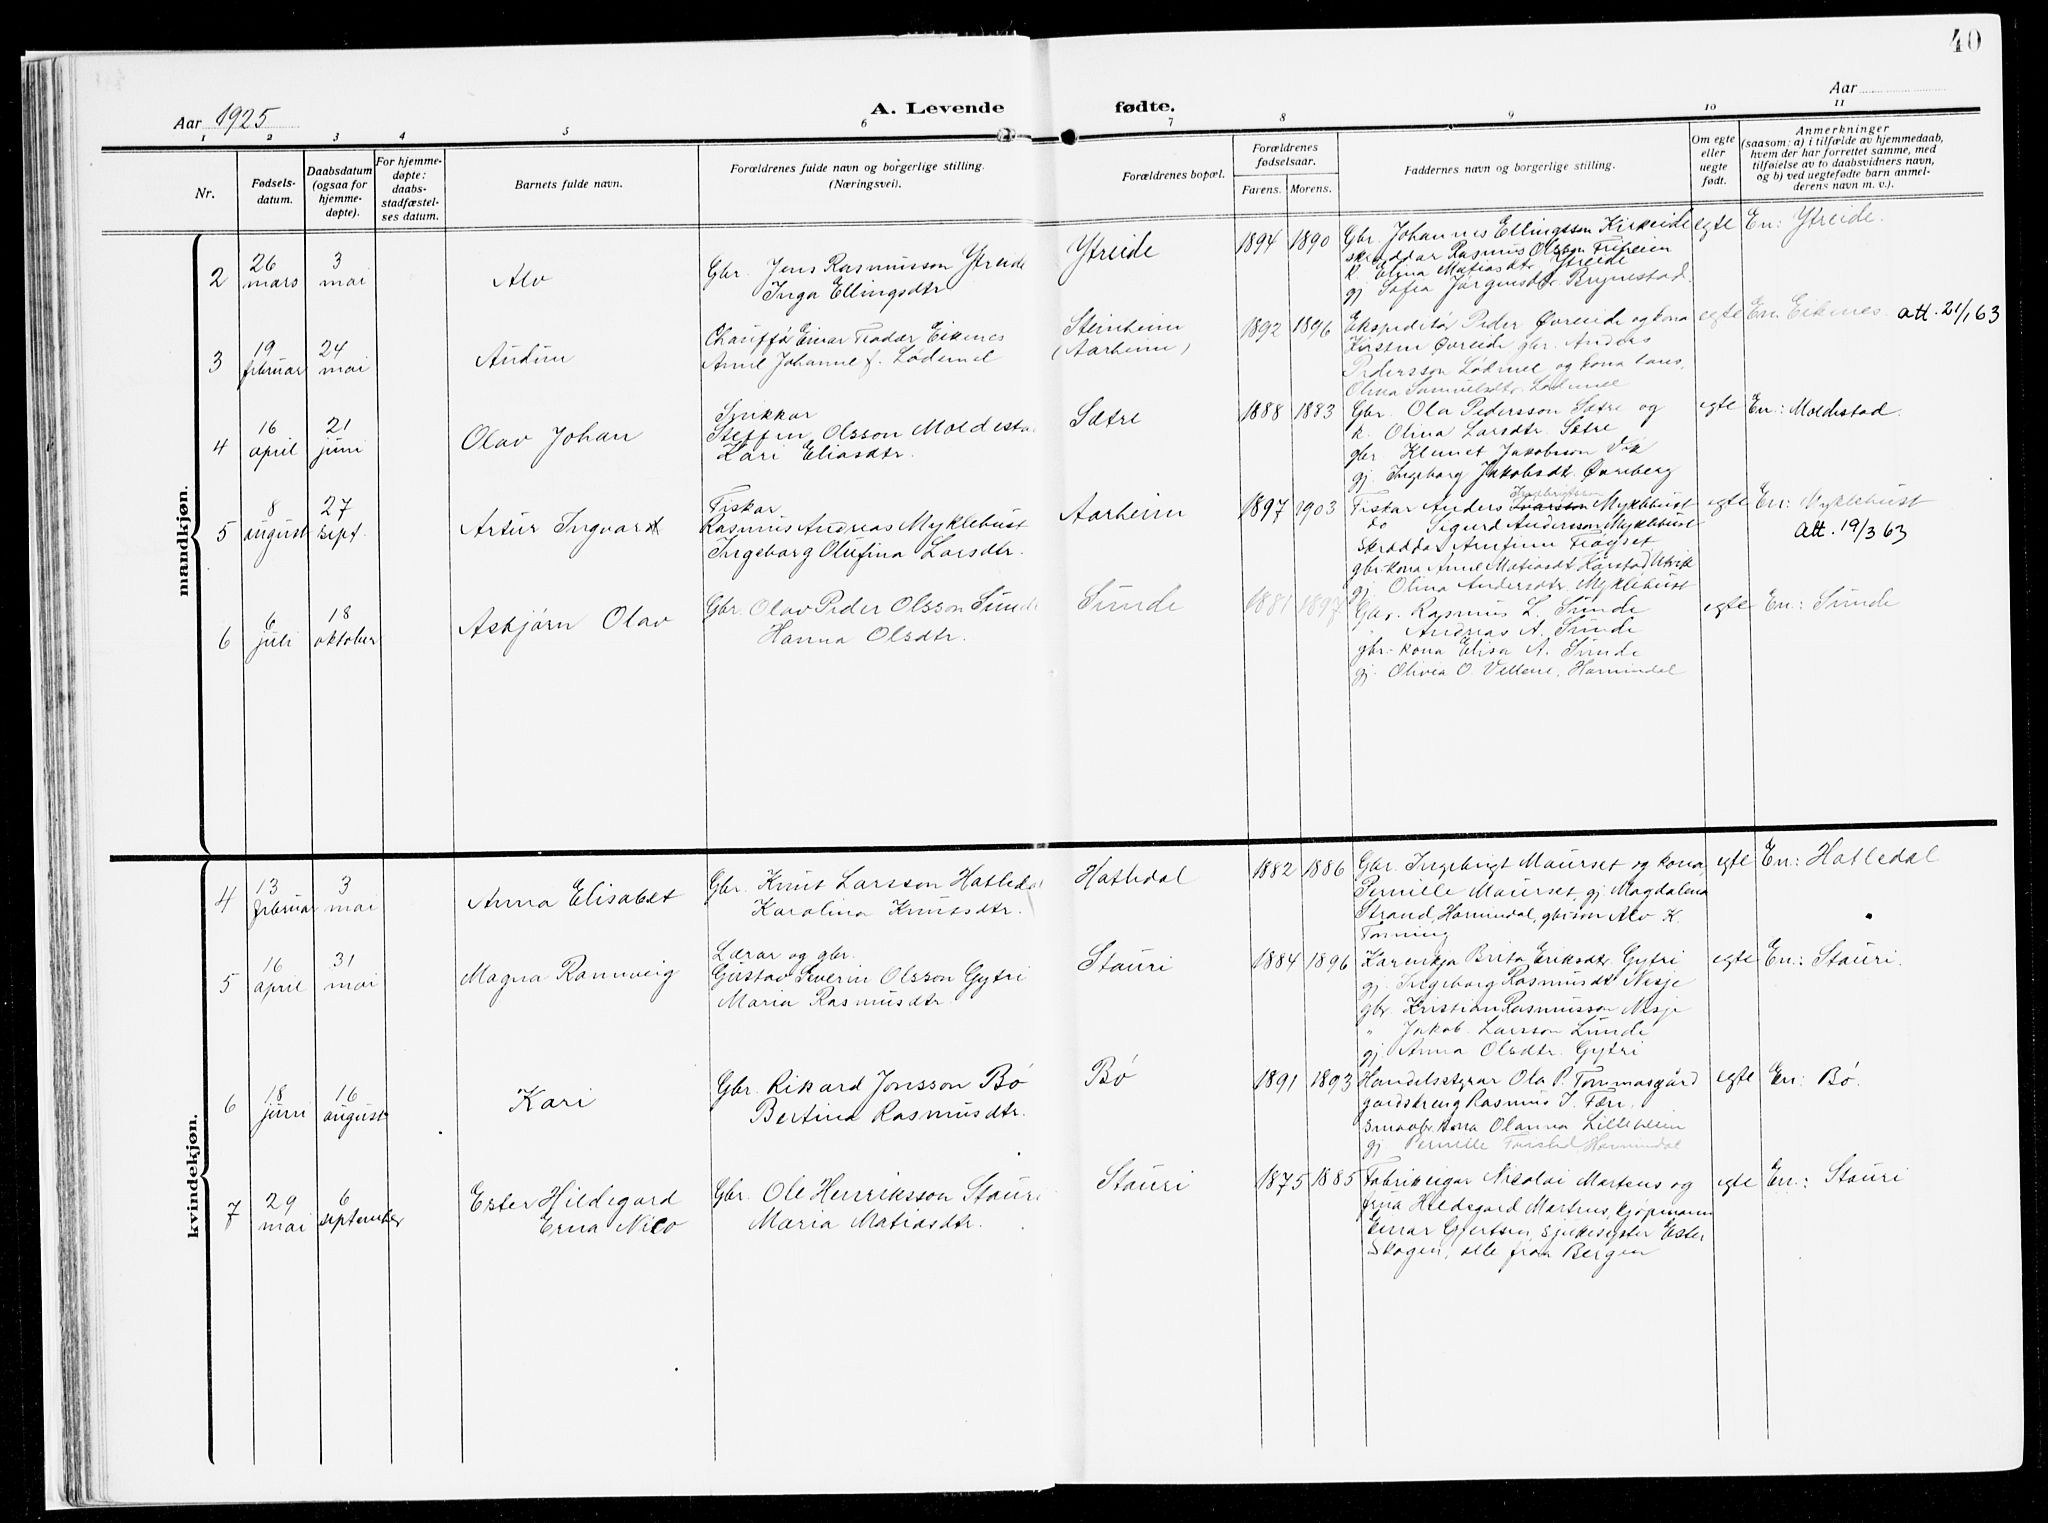 40
Aar 1925
A. Levende fødte.
Aar
1 2 3 4 5 6 7 8 9 10 11
Nr.
Fødsels-
datum.
Daabsdatum
(ogsaa for
hjemme-
døpte).
For hjemme-
døpte:
daabs-
stadfæstel-
ses datum.
Barnets fulde navn.
Forældrenes fulde navn og borgerlige stilling.
(Næringsvei).
Forældrenes bopæl.
Forældrenes
fødselsaar.
Farens. Morens.
Faddernes navn og borgerlige stilling.
Om egte
eller
uegte
født.
Anmerkninger
(saasom: a) i tilfælde av hjemmedaab,
hvem der har forrettet samme, med
tilføielse av to daabsvidners navn,
og b) ved uegtefødte barn anmel-
derens navn m. v.).
mandkjøn.
2
26
mars
3
mai
Alv
Gbr. Jens Rasmusson Ytreide
Inga Ellingsdtr
Ytreide
1894 1890
Gbr. Johannes Ellingsson Kirkeide
skræddar Rasmus Olsson
k. Elina Matiasdtr Ytreide
gj. Sofia Jørgensdtr Brynestad
egte
En: Ytreide.
3
19
februar
24
mai
Audun
Chauffø Einar Teodor Eikenes
Anne Johanne f. Lødemel
Steinheim
(Aarheim)
1892 1896
Ekspeditør Peder Øvreide og kona
Kirsten Øvreide gbr. Anders
Pedersson Lødemel og kona hans,
Olina Samuelsdtr. Lødemel
egte
En: Eikenes. att. 21/1 63
4
16
april
21
juni
Olav Johan
Snikkar
Steffen Olsson Moldestad
Kari Eliasdtr.
Sætre
1888 1883
Gbr. Ola Pedersson Sætre og
k. Olina Larsdtr. Sætre
gbr Klemet Jakobsson Vik
gj. Ingeborg Jakobsdt. Øvreberg
egte
En: Moldestad.
5
8
august
27
sept.
Artur Ingvar
Fiskar
Rasmus Andreas Myklebust
Ingeborg Olufina Larsdtr.
Aarheim
1897 1903
Ingebrigtsson
Fiskar Anders Ivarsson Myklebust
do Sigurd Andersson Myklebust
Skræddar Arnfinn Frøyset
gbr-kona Anne Matiasdt Karstad Utvik
gj. Olina Andersdtr. Myklebust
egte
En: Myklebust
att. 19/3 63
6
6
juli
18
oktober
Asbjørn Olav
Gbr. Olav Peder Olsson Sunde
Hanna Olsdtr.
Sunde
1881 1897
Gbr. Rasmus L. Sunde
" Andreas A. Sunde
gbr-kona Elisa A. Sunde
gj. Olivia O. Vellene, Hornindal
egte
En: Sunde
kvindekjøn.
4
13
februar
3
mai
Anna Elisabet
Gbr. Knut Larsson Hatledal
Karolina Knutsdtr.
Hatledal
1882 1886
Gbr. Ingebrigt Maurset og kona
Pernille Maurset, gj Magdalena
Strand, Hornindal, gbrson Alv K.
Tonning
egte
En: Hatledal
5
16
april
31
mai
Magna Rannveig
Lærar og gbr.
Gustav Severin Olsson Gytri
Maria Rasmusdtr.
Stauri
1884 1896
Kårenkja Brita Eriksdtr. Gytri
gj. Ingeborg Rasmusdt Nesje
gbr. Kristian Rasmusson Nesje
" Jakob Larsson Sunde
gj. Anna Olsdtr. Gytri
egte
En: Stauri.
6
18
juni
16
august
Kari
Gbr. Rikard Jonsson Bø
Bertina Rasmusdtr.
Bø
1891 1893
Handelsstyrar Ola P. Tommasgård
gardstreng Rasmus J. Færi.
smaabr. kona Olanna Lilleheim
gj. Pernille Hornindal
egte
En: Bø.
7
29
mai
6
september
Ester Hildegard
Erna Nico
Gbr. Ole Henriksson Stauri
Maria Matiasdtr.
Stauri
1875 1885
Fabrikeigar Nikolai Martens og
frua Hildegard Martens, kjøpmann
Einar Gjertsen, sjukesyster Ester
Skogen, alle fraa Bergen
egte
En: Stauri